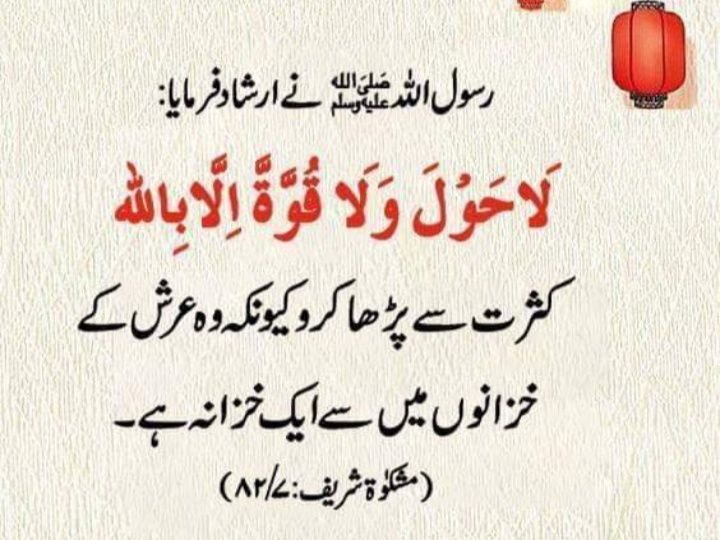 رسول اللہ ﷺ نے ارشاد فرمایا:
لَا حَوْلَ وَلَا قُوَّةَ اِلَّا بِاللّٰه
کثرت سے پڑھا کرو کیونکہ وہ عرش کے
خزانوں میں سے ایک خزانہ ہے۔
(مشکوٰۃ شریف: ۸۲/۷)